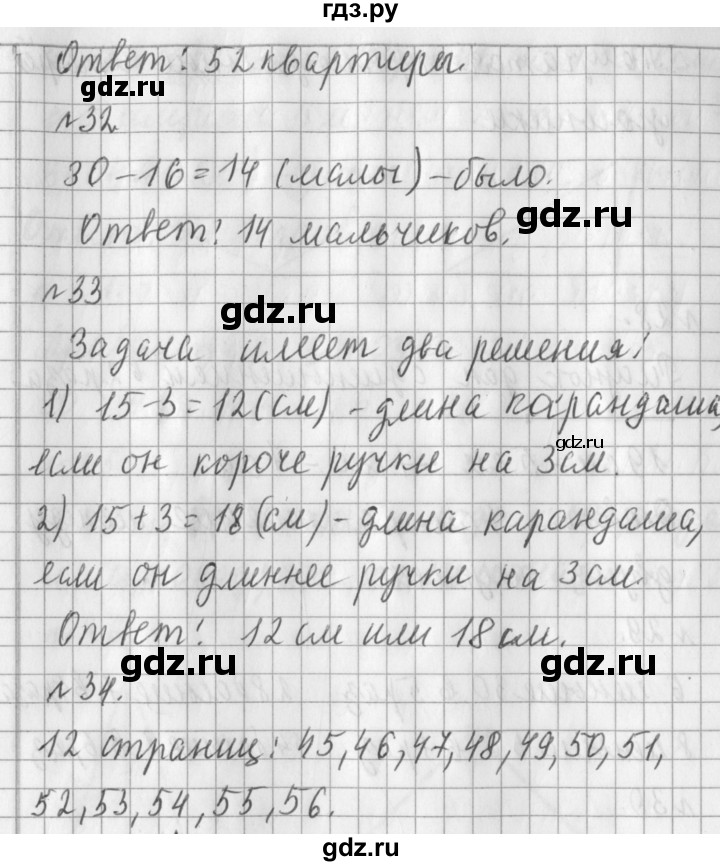 гдз.ру
Ответ: 52 квартиры.
gdz.ru
№32
30-16=14 (малы) - было.
gdz.ru
Ответ: 14 мальчиков.
№33
gdz.ru
Задача имеет два решения:
1) 15-3=12(см) - длина карандаша,
gdz.ru
если он короче ручки на 3см.
2) 15+3=18(см) - длина карандаша,
если он длиннее ручки на 3см.
Ответ: 12см или 18см.
gdz.ru gdz.ru
№34.
12 страниц: 45,46,47,48,49,50,51,
52,53,54,55,56.
gdz.ru
gdz.ru